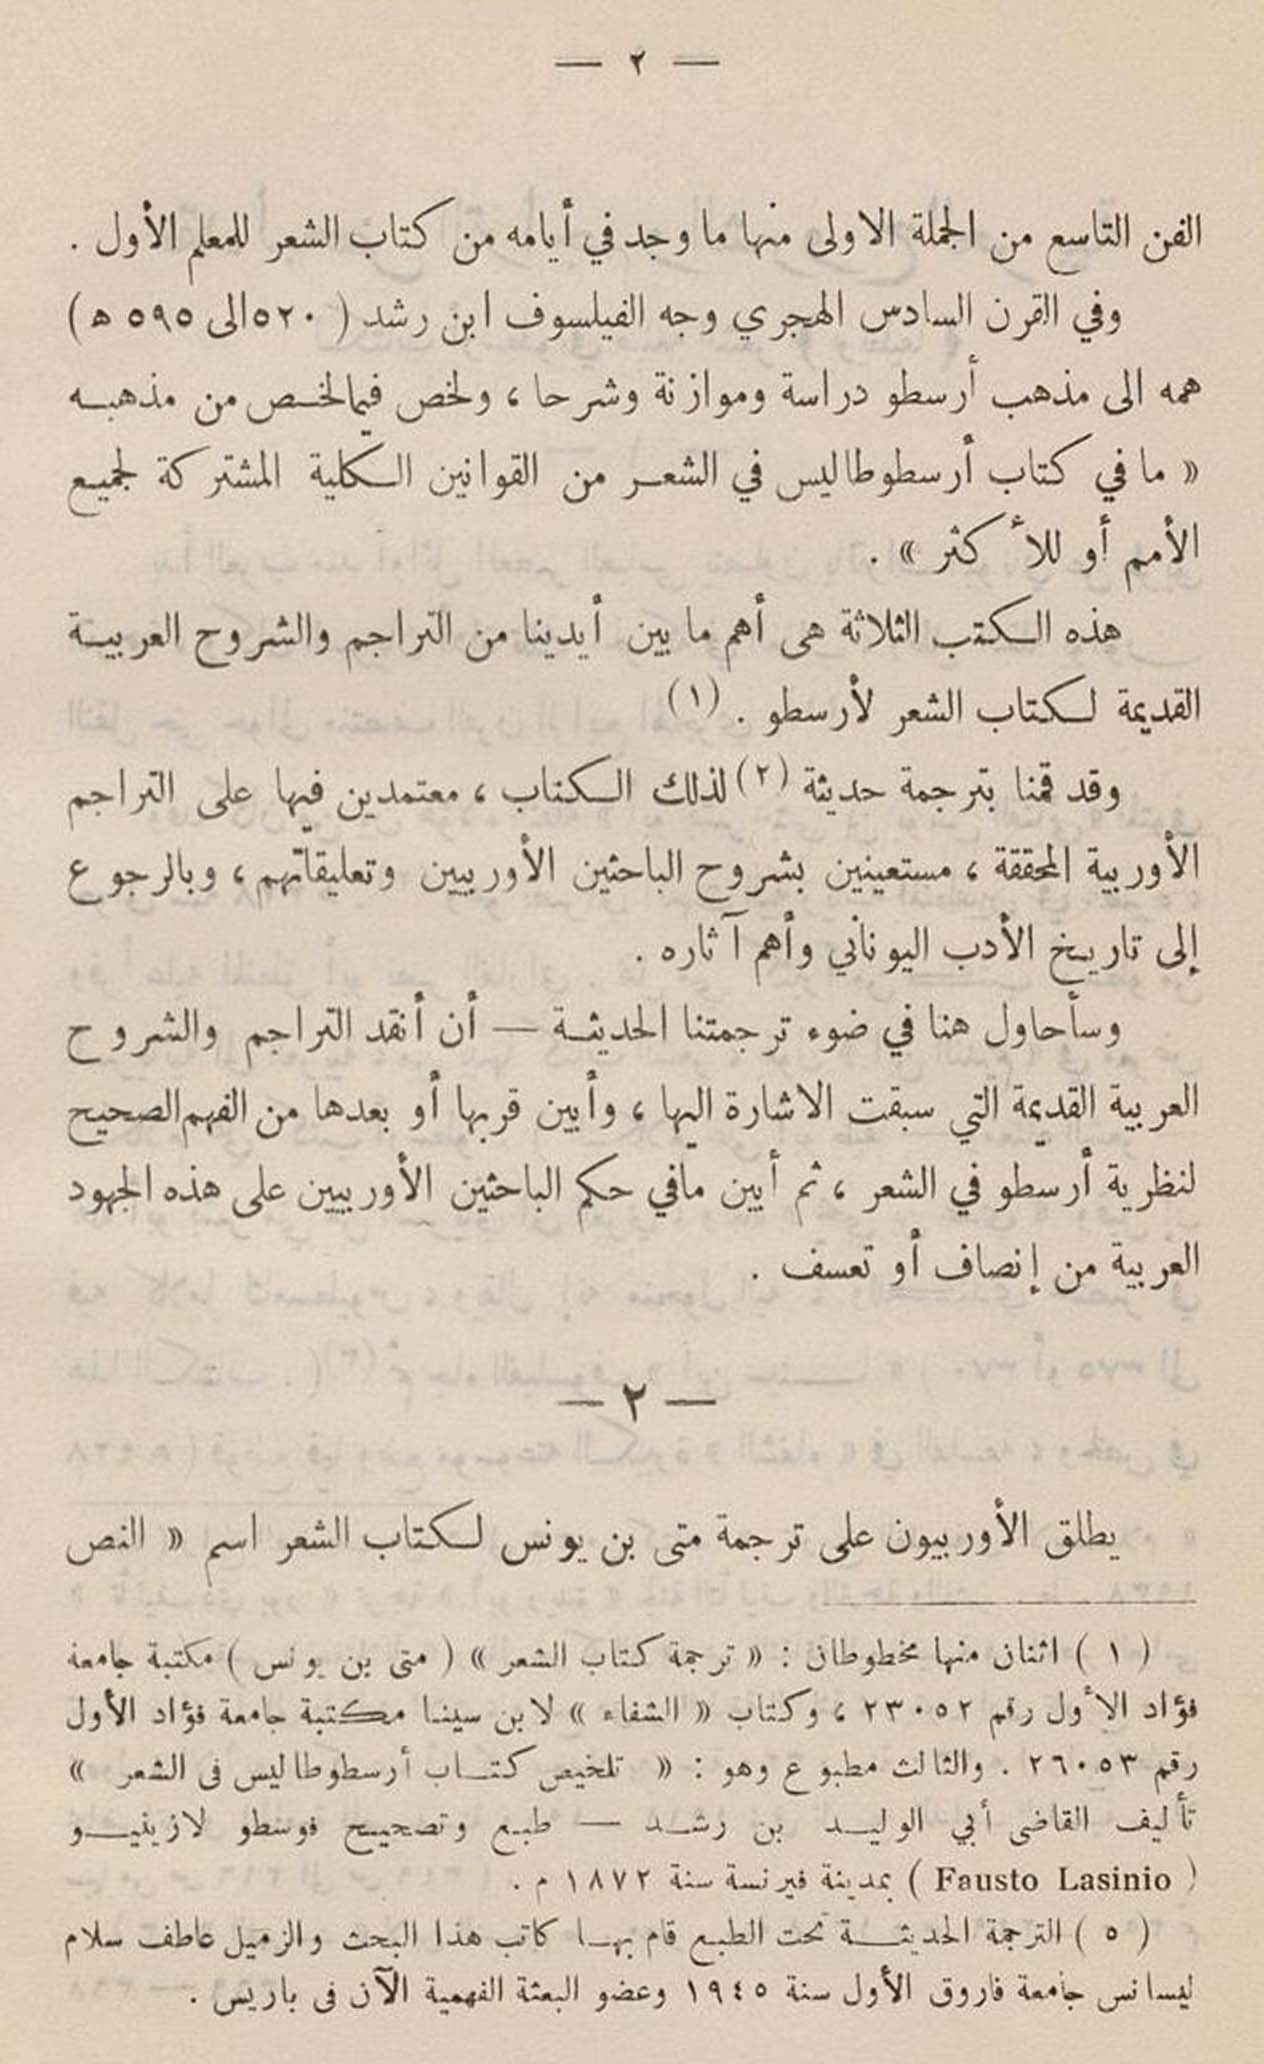 — ٢ —
الفن التاسع من الجملة الاولى منها ما وجد في أيامه من كتاب الشعر للمعلم الأول .
وفي القرن السادس الهجري وجه الفيلسوف ابن رشد ( ٥٢٠ الى ٥٩٥ ه )
همه الى مذهب أرسطو دراسة وموازنة وشرحا ، ولخص فيما لخص من مذهبه
« ما في كتاب أرسطوطاليس في الشعر من القوانين الكلية المشتركة لجميع
الأمم أو للأكثر » .
هذه الكتب الثلاثة هى أهم ما بين أيدينا من التراجم والشروح العربية
القديمة لكتاب الشعر لأرسطو . (١)
وقد قمنا بترجمة حديثة (٢) لذلك الكتاب ، معتمدين فيها على التراجم
الأوربية المحققة ، مستعينين بشروح الباحثين الأوربيين وتعليقاتهم ، وبالرجوع
إلى تاريخ الأدب اليوناني وأهم آثاره .
وسأحاول هنا في ضوء ترجمتنا الحديثة — أن أنقد التراجم والشروح
العربية القديمة التي سبقت الاشارة اليها ، وأبين قربها أو بعدها من الفهم الصحيح
لنظرية أرسطو في الشعر ، ثم أبين مافي حكم الباحثين الأوربيين على هذه الجهود
العربية من إنصاف أو تعسف .
— ٢ —
يطلق الأوربيون على ترجمة متى بن يونس لكتاب الشعر اسم « النص
( ١ ) اثنان منها مخطوطان : « ترجمة كتاب الشعر » ( متى بن يونس ) مكتبة جامعة
فؤاد الأول رقم ٢٣٠٥٢ ، وكتاب « الشفاء » لابن سينا مكتبة جامعة فؤاد الأول
رقم ٢٦٠٥٣ . والثالث مطبوع وهو : « تلخيص كتاب أرسطوطاليس فى الشعر »
تأليف القاضى أبي الوليد بن رشد — طبع وتصحيح فوسطو لازينيو
( Fausto Lasinio ) بمدينة فيرنسة سنة ١٨٧٢ م .
( ٥ ) الترجمة الحديثة تحت الطبع قام بها كاتب هذا البحث والزميل عاطف سلام
ليسانس جامعة فاروق الأول سنة ١٩٤٥ وعضو البعثة الفهمية الآن فى باريس .